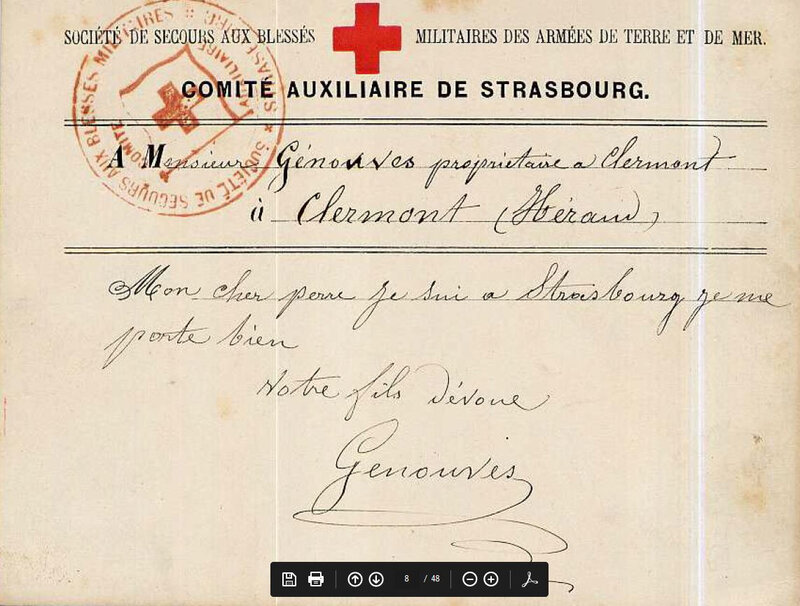 SOCIÉTÉ DE SECOURS AUX BLESSÉS MILITAIRES DES ARMÉES DE TERRE ET DE MER.
COMITÉ AUXILIAIRE DE STRASBOURG.
SOCIÉTÉ DE SECOURS AUX BLESSÉS MILITAIRES
COMITÉ AUXILIAIRE
A Monsieur Génouves propriétaire a Clermont
à Clermont (Héraud)
Mon cher perre je sui a Strasbourg je me
porte bien
Votre fils dévoue
Genouves
8 / 48